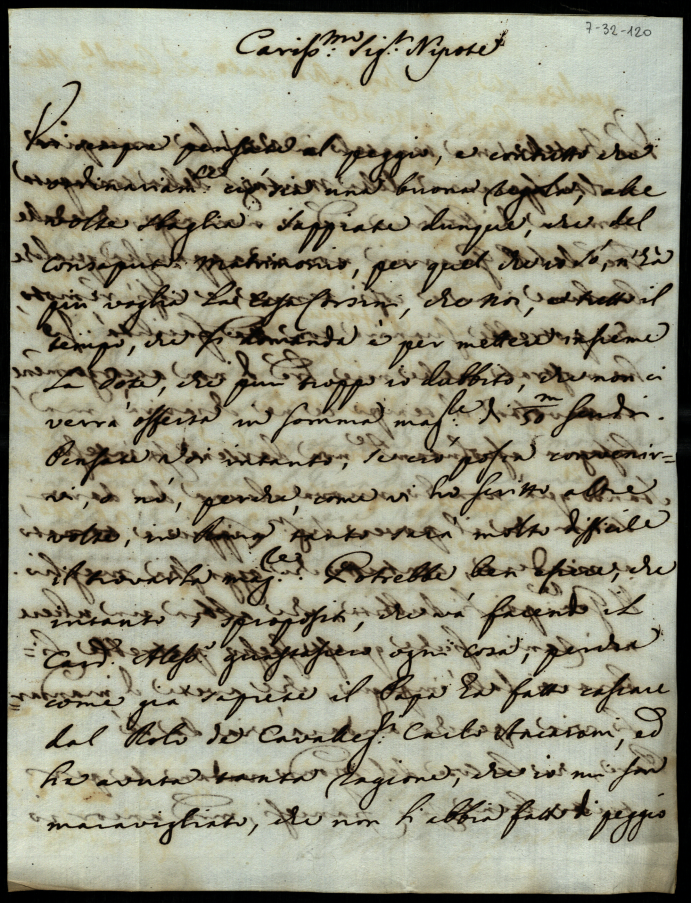 7-32-120
Cariss.mo Sig.r Nipote
Voi sempre pensate al peggio, e contutto che
ordinariam.te ciò sia una buona regola, alle
volte sbaglia. Sappiate dunque, che del
consaputo Matrimonio, per quel che io sò, n'hà
più voglia La Casa Corsini, che Noi, e tutto il
tempo, che si domanda è per mettere insieme
La Dote, che pur troppo io dubbito, che non ci
verrà offerta in somma mag.re di 50 m scudi.
Pensate Voi intanto, se ciò possa convenir=
vi, o nò, perche, come vi ho scritto altre
volte, in Roma tanto sarà molto difficile
il trovarla mag.re Potrebbe ben essere, che
intanto i spropositi, che và facendo il
Card. Aless. guastassero ogni cosa, perche
come già saprete il Papa hà fatto cassare
dal Rolo de Cavalleg.ri Carlo Anciaioni, ed
ha avuta tanta ragione, che io mi son
maravigliato, che non li abbia fatto di peggio